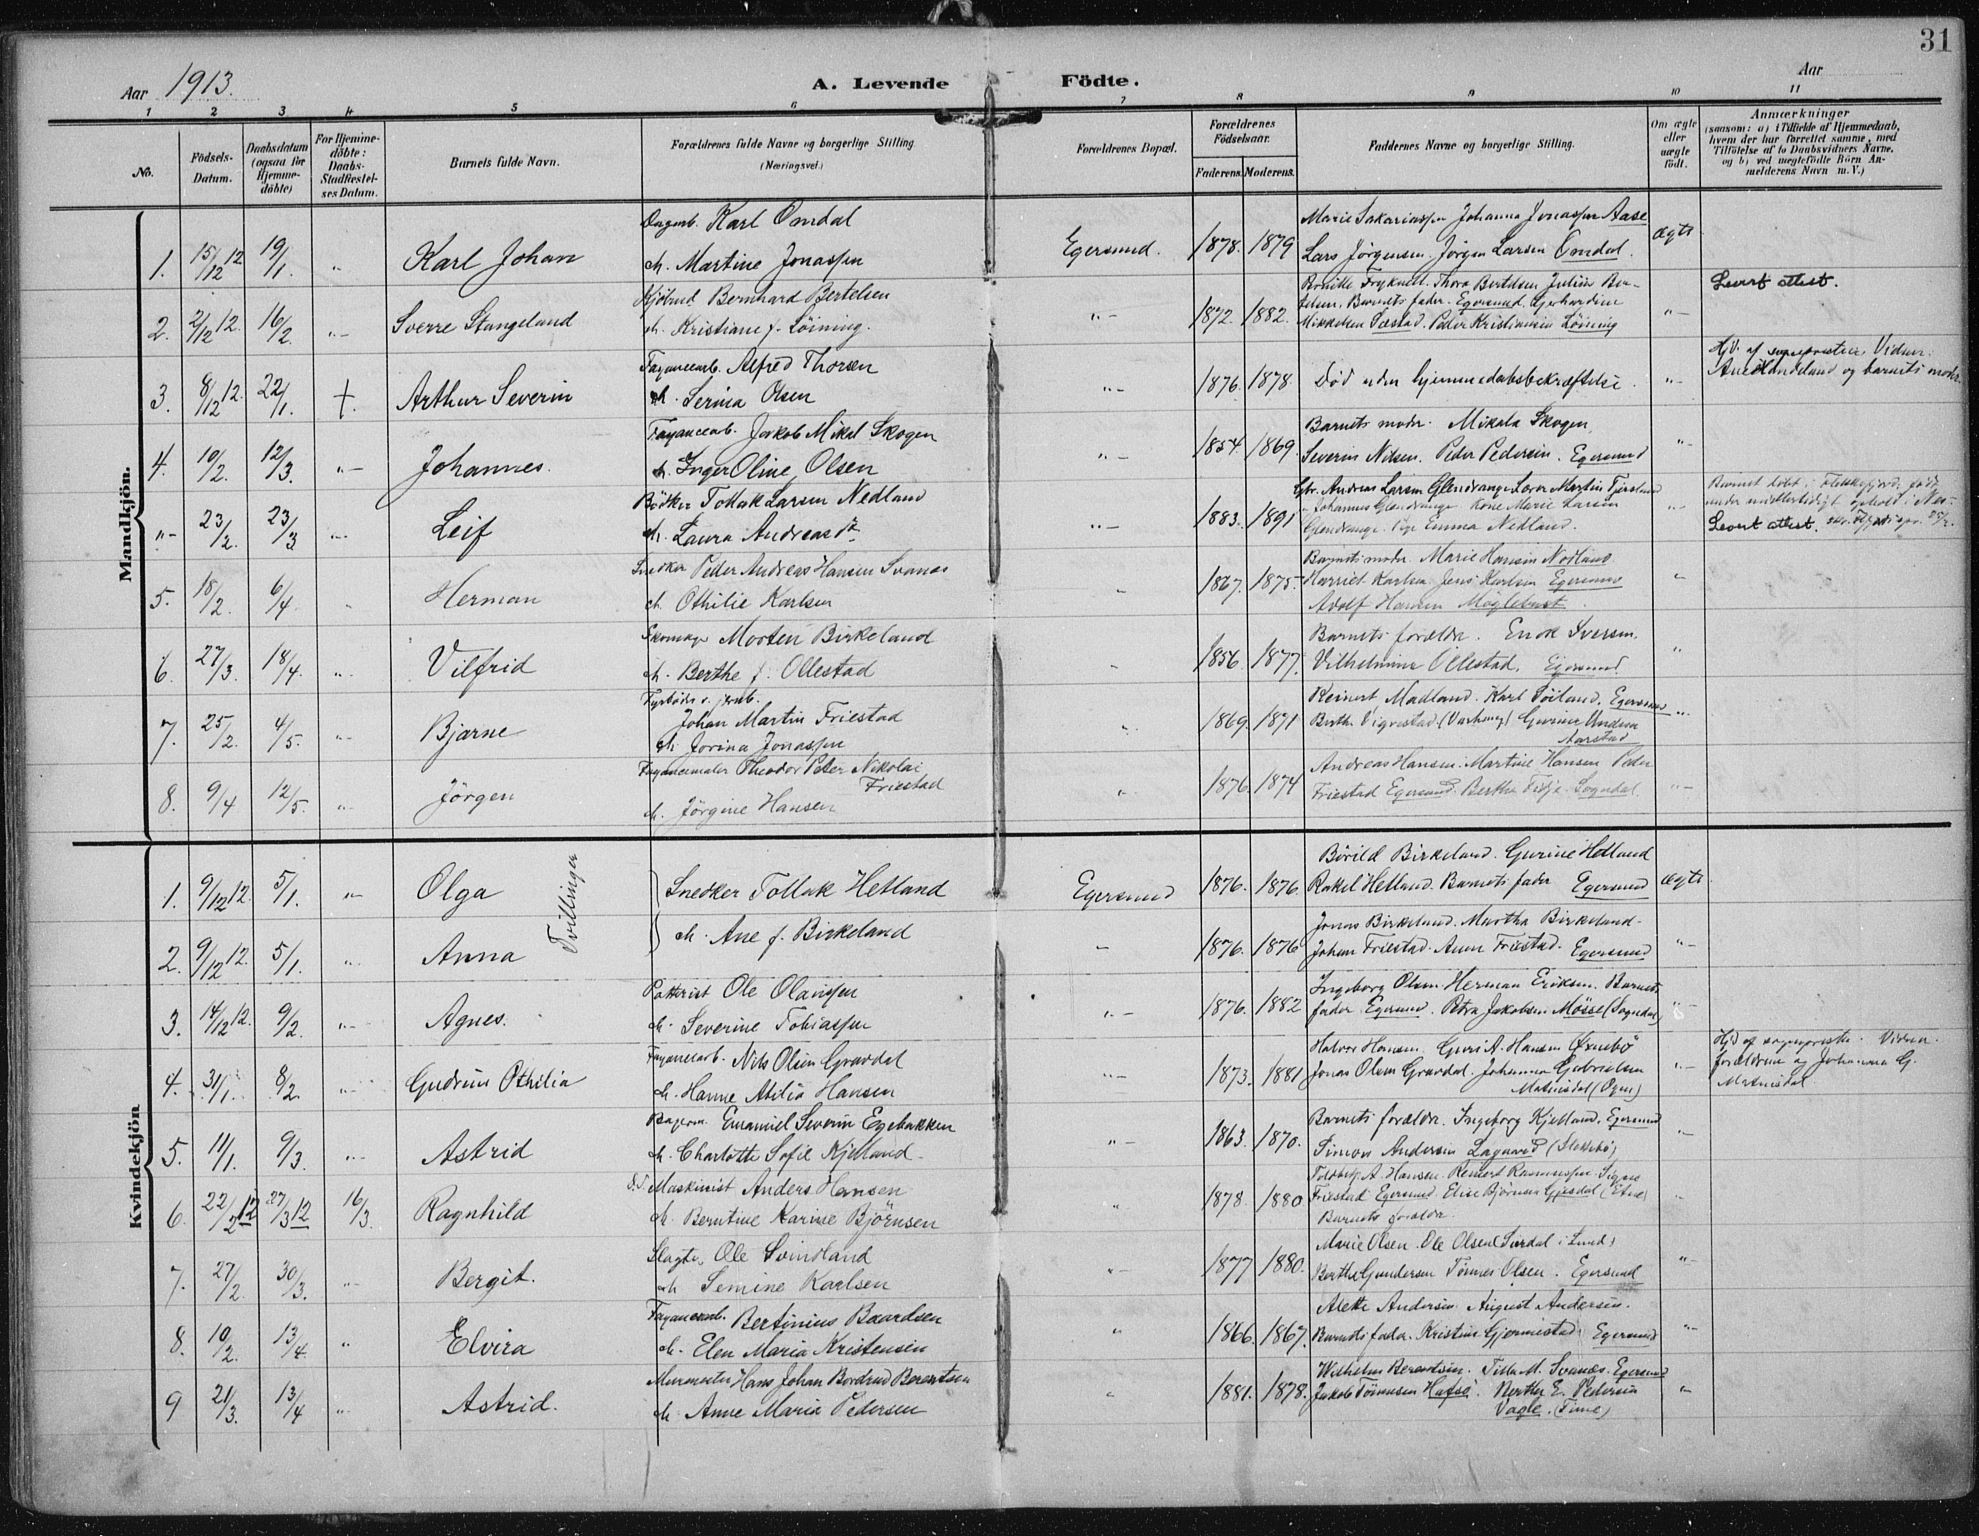 31
Aar 1913.
A. Levende Födte.
Aar
1 2 3 4 5 6 7 8 9 10 11
No.
Födsels-
Datum.
Daabsdatum
(ogsaa for
Hjemme-
döbte)
For Hjemme-
döbte:
Daabs-
Stadfæstel-
ses Datum.
Barnets fulde Navn.
Forældrenes fulde Navne og borgerlige Stilling
(Næringsvei.)
Forældrenes Bopæl.
Forældrenes
Födselsaar.
Faderens. Moderens.
Faddernes Navne og borgerlige Stilling.
Om ægte
eller
uægte
födt.
Anmærkninger
(saasom: a) i Tilfælde af Hjemmedaab,
hvem der har forrettet samme, med
Tilföielse af to Daabsvidners Navne,
og b) ved uægtefödte Börn An-
melderens Navn m. V.)
Mandkjön.
Dagarb. Karl Omdal
Marie Sakariassen Johanna Jonassen Aase
1. 15/12 12 19/1. " Karl Johan M. Martine Jonassen Egersund. 1878. 1879 Lars Jørgensen. Jørgen Larsen Omdal. ægte
Bernhard Bertelsen
Thora Bertelsen Julius Ber-
telsen. Barnets fader. Egersund. Gerhardine
Levert attest.
2. 2/12 12. 16/2. "- Sverre Stangeland M. Kristiane f. Löining. "- 1872. 1882. Mikkelsen Sæstad. Peder Kristiansen Löining "-
Fayancearb. Alfred Thorsen
Hjd. af Vidner:
3. 8/12 12. 22/1. +. Arthur Severin M. Serina Olsen "- 1876. 1878 Död uden hjemmedaabsbekræftelse. "- og barnets moder.
Fayancearb. Jakob Mikal Skogen
Barnets moder. Mikala Skogen
4. 10/2. 12/3. "- Johannes. M. Inger Oline Olsen "- 1854. 1869. Severin Nilsen. Peder Pedersen. Egersund "-
Bödker Tollak Larsen Nedland
Gbr. Andreas Larsen Glendrange Lærer Martin
Johannes Glendrange Kone Marie Larsen
"- 23/2. 23/3 "- Leif M. Laura Andreasd. "- 1883. 1891 Glendrange. Emma Nedland. "- Levert attest.
Snedker Peder Andreas Hansen Svanes
Barnets moder Marie Hansen Nodland
5. 18/2. 6/4. " Herman M. Othilie Karlsen " 1867. 1875. Harriet Karlsen Jens Karlsen Egersund "
Adolf Hansen Möglebust.
Skomager Morten Birkeland
Barnets forældre. Enok Iversen.
6. 27/3. 18/4. "- Vilfrid M. Berthe f. Ollestad " 1856. 1877. Vilhelmine Ollestad. Egersund. "
Fyrböder v. jernb.
Johan Martin Friestad
Reinert Madland. Karl Söiland. Egersund
7. 25/2. 4/5. "- Bjarne M. Jorina Jonassen " 1869. 1871 Berthe Vigrestad (Varhaug) Gurine
Aarstad
Fayancemaler Theodor Peter Nikolai
Friestad
Andreas Hansen. Martine Hansen Peder
8. 9/4 12/5. "- Jörgen M. Jörgine Hansen " 1876. 1874 Friestad Egersund. Berthe Sogndal. "-
Kvindekjön
Börild Birkeland. Gurine Hetland
1. 9/12 12. 5/1. "- Olga Tvillinger Snedker Tollak Hetland Egersund 1876. 1876. Rakel Hetland. Barnets fader Egersund ægte
M. Ane f. Birkeland
Jonas Birkeland. Martha Birkeland.
2. 9/12 12. 5/1. " Anna "- 1876. 1876 Johan Friestad. Anna Friestad. Egersund "-
Potterist Ole Olaussen
Ingeborg Olsen. Herman Eriksen. Barnets
3. 14/12 12. 9/2. "- Agnes. M. Severine Tobiassen "- 1876. 1882 fader. Egersund. Petra Jakobsen Mösse (Sogndal) "-
Fayancearb. Nils Olsen Gravdal
Halvor Hansen. Guri A. Hansen
Hjd af sogneprsten. Vidner
4. 31/1. 8/2. "- Gudrun Othilia M. Hanne Atilia Hansen "- 1873. 1881 Jonas Olsen Gravdal. Johanna Gabrielsen "- forældrene og Johanna G.
Matnisdal (Ogna)
Matnisdal
Bagerm. Emanuel Severin Egebakken
Barnets forældre. Ingeborg Kjelland. Egersund
5. 11/1. 9/3. "- Astrid M. Charlotte Sofie Kjelland. "- 1863. 1870. Simon Andersen Lagaard (Slettebö) "-
Maskinist Anders Hansen
A. Hansen. Reinert Rasmussen Signe
6. 22/2 12 27/3 12 16/3. Ragnhild M. Berntine Karine Björnsen " 1878. 1880 Friestad Egersund. Elise Björnsen Gjesdal "
Barnets forældre.
Slagter Ole Svindland
Marie Olsen. Ole Olsen
7. 27/2. 30/3. "- Bergit. M. Semine Karlsen "- 1877 1880. Berthe Gundersen Tönnes Olsen. Egersund "-
Fayancearb. Bertinius Baardsen
Alette Andersen. August Andersen.
8. 10/2. 13/4. " Elvira M. Elen Maria Kristensen " 1866. 1867. Barnets fader. Kristine Gjermestad Egersund "-
Murmester Hans Johan Berentsen
Wilhelm Berentsen. Tilla M. Svanes. Egersund
9 21/3. 13/4 "- Astrid. M. Anne Maria Pedersen " 1881. 1878. Jakob Tönnesen Hafsö. Berthe E. Pedersen "
Vagle. (Time)